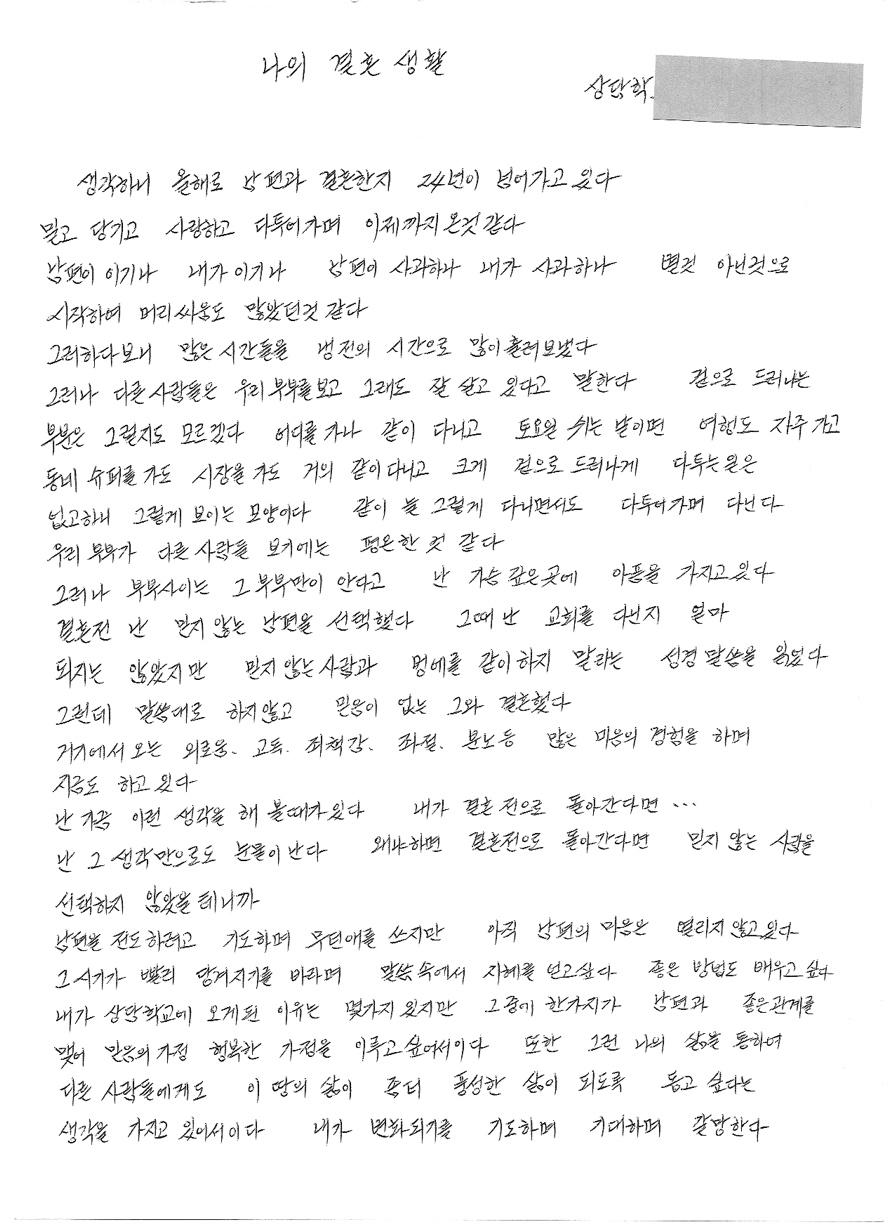 나의 결혼 생활
상담학
생각하니 올해로 남편과 결혼한지 24년이 넘어가고 있다
밀고 당기고 사랑하고 다투어가며 이제까지 온것 같다
남편이 이기나 내가 이기나 남편이 사과하나 내가 사과하나 별것 아닌것으로
시작하여 머리싸움도 많았던것 같다
그러하다보니 많은 시간들을 냉전의 시간으로 많이 흘려보냈다
그러나 다른 사람들은 우리 부부를 보고 그래도 잘 살고 있다고 말한다 겉으로 드러나는
부분은 그럴지도 모르겠다 어디를 가나 같이 다니고 토요일 쉬는 날이면 여행도 자주 가고
동네 슈퍼를 가도 시장을 가도 거의 같이 다니고 크게 겉으로 드러나게 다투는 일은
없고하니 그렇게 보이는 모양이다 같이 늘 그렇게 다니면서도 다투어가며 다닌다
우리 부부가 다른 사람들 보기에는 평온한 것 같다
그러나 부부사이는 그 부부만이 안다고 난 가슴 깊은곳에 아픔을 가지고 있다
결혼전 난 믿지 않는 남편을 선택했다 그때 난 교회를 다닌지 얼마
되지는 않았지만 믿지 않는 사람과 멍에를 같이 하지 말라는 성경 말씀을 읽었다
그런데 말씀대로 하지않고 믿음이 없는 그와 결혼했다
거기에서 오는 외로움, 고독, 죄책감, 좌절, 분노등 많은 마음의 경험을 하며
지금도 하고 있다
난 가끔 이런 생각을 해 볼때가 있다 내가 결혼 전으로 돌아간다면 …
난 그 생각만으로도 눈물이 난다 왜냐하면 결혼전으로 돌아간다면 믿지 않는 사람을
선택하지 않았을 테니까
남편을 전도하려고 기도하며 무던애를 쓰지만 아직 남편의 마음은 열리지 않고 있다
그 시기가 빨리 당겨지기를 바라며 말씀 속에서 지혜를 얻고 싶다 좋은 방법도 배우고 싶다
내가 상담학교에 오게된 이유는 몇가지 있지만 그중에 한가지가 남편과 좋은관계를
맺어 믿음의 가정 행복한 가정을 이루고 싶어서이다 또한 그런 나의 삶을 통하여
다른 사람들에게도 이 땅의 삶이 좀더 풍성한 삶이 되도록 돕고 싶다는
생각을 가지고 있어서이다 내가 변화되기를 기도하며 기대하며 갈망한다